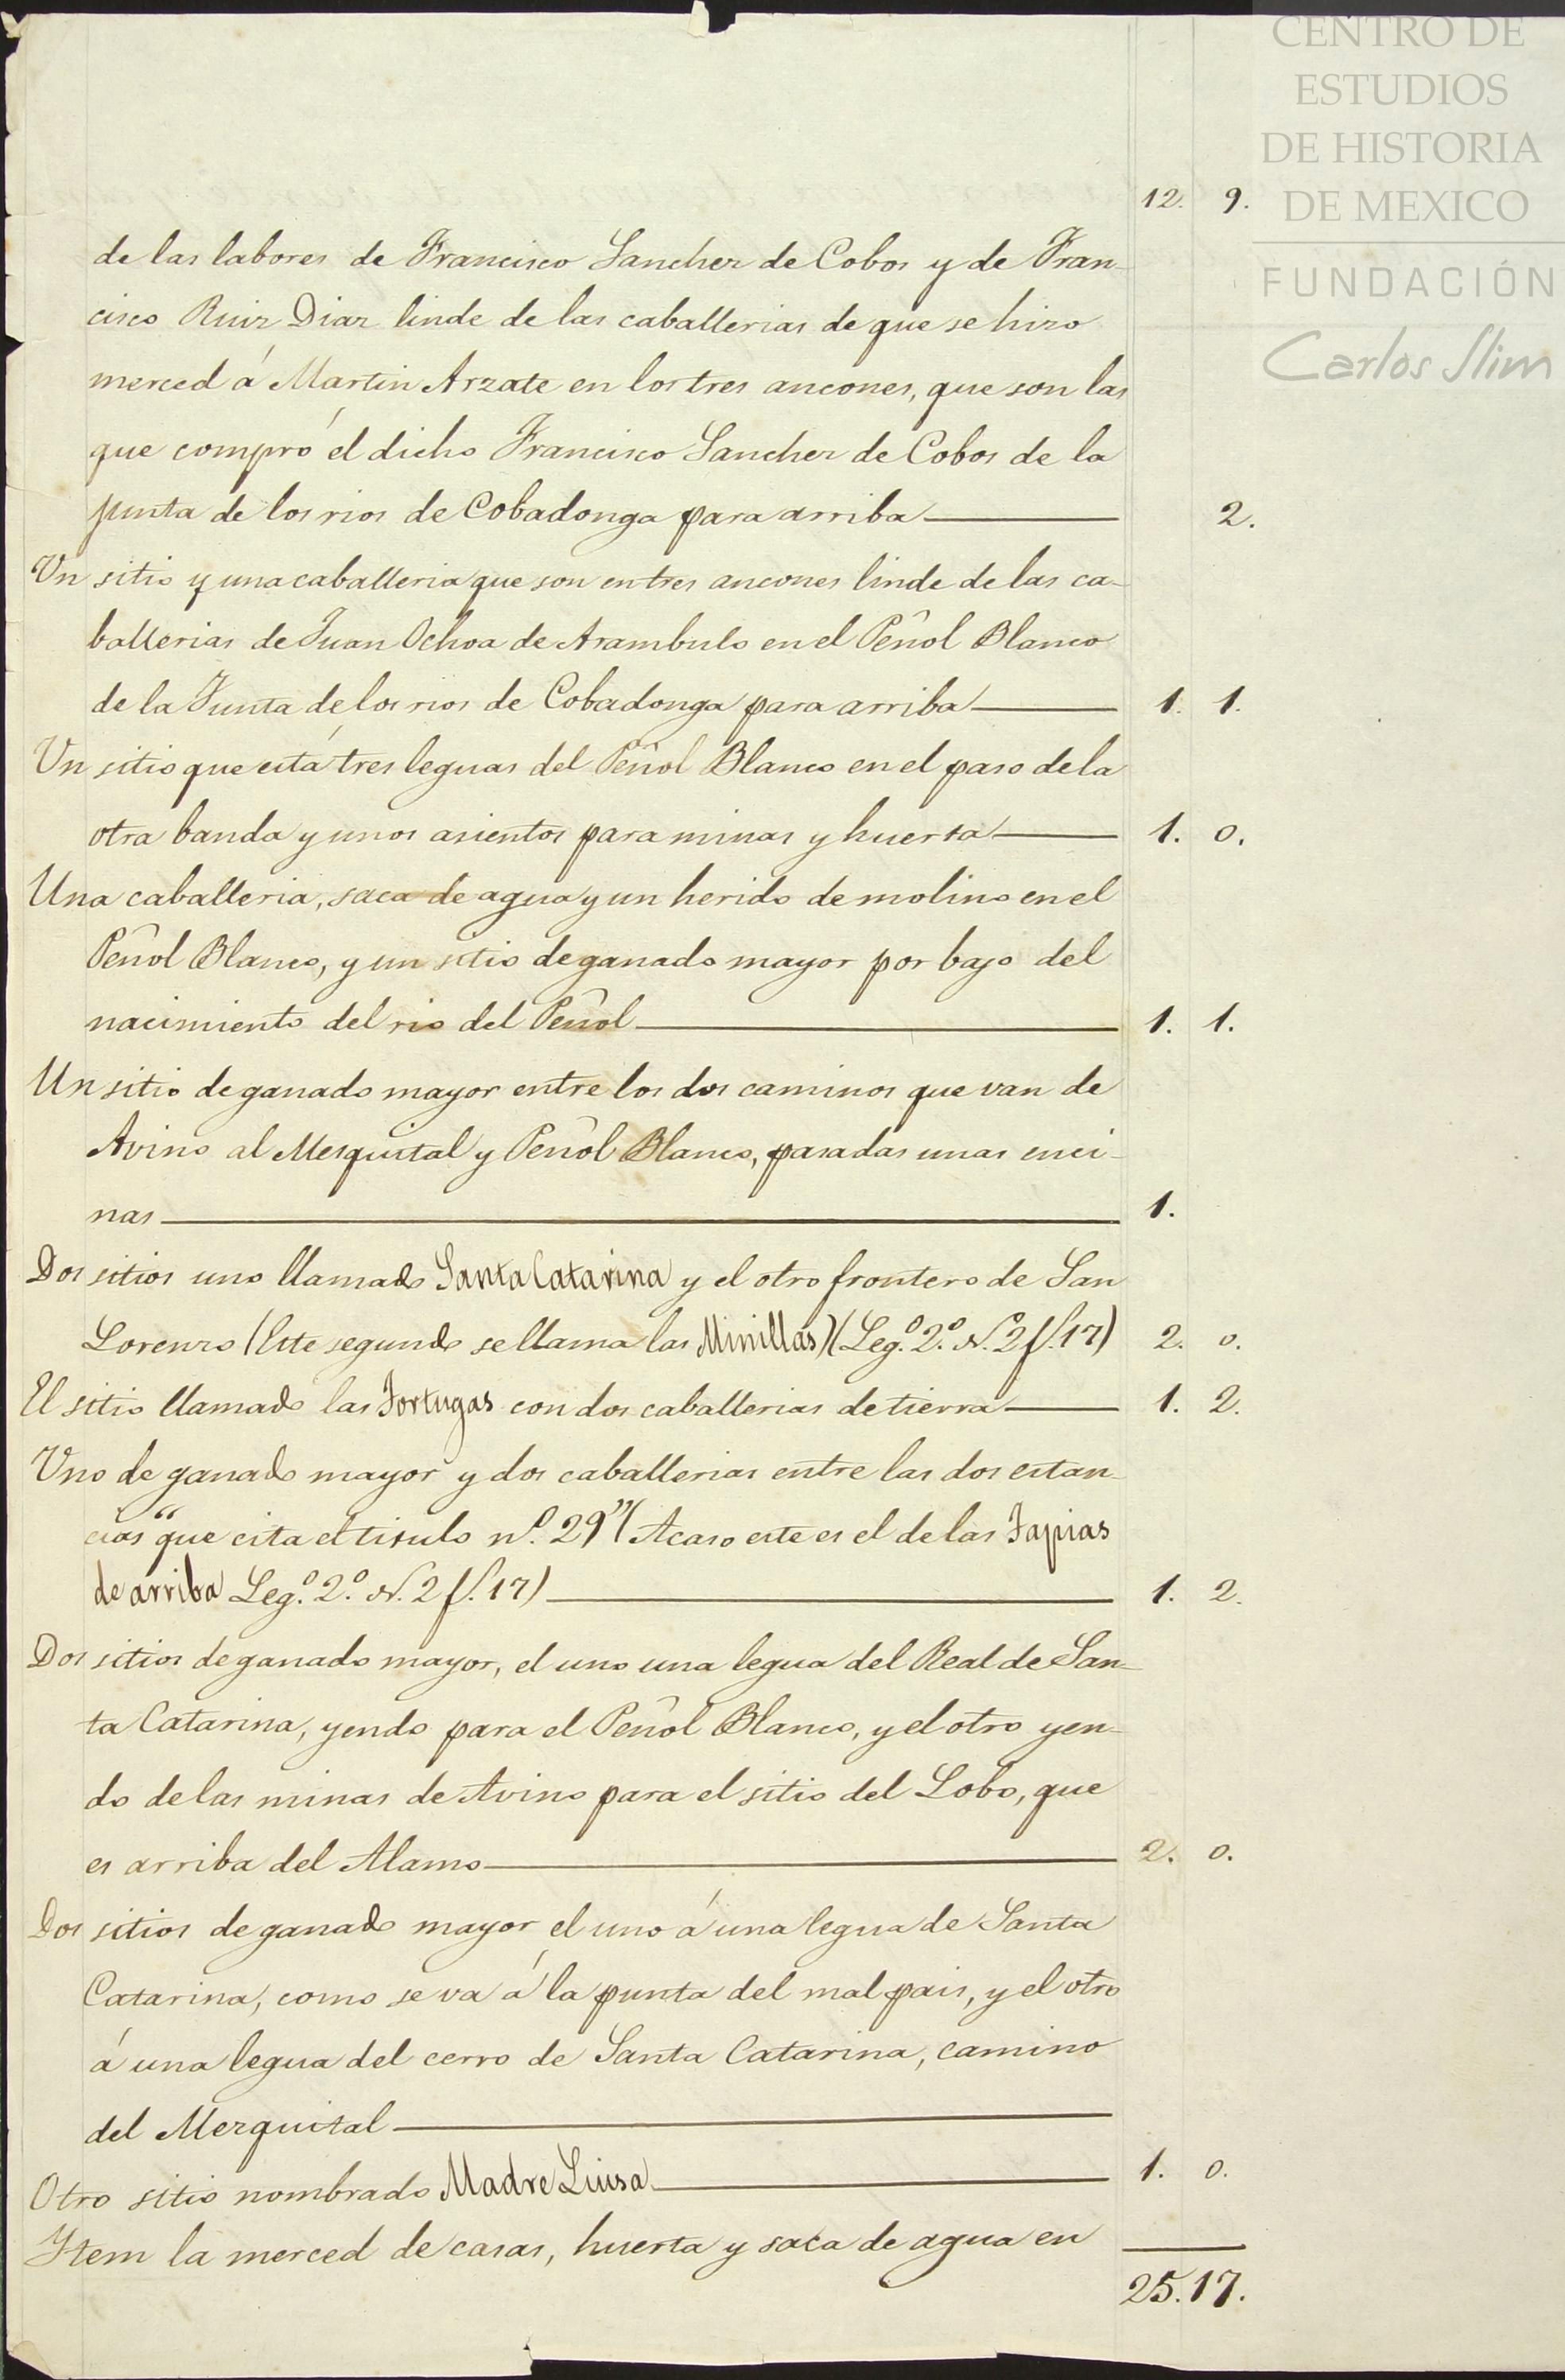 CENTRO DE
ESTUDIOS
DE HISTORIA
DE MEXICO
FUNDACIÓN
Carlos Slim
12. 9.
de las labores de Francisco Sanchez de Cobos y de Fran-
cisco Ruiz Diaz linde de las caballerias de que se hizo
merced á Martin Arzate en los tres ancones, que son las
que compró el dicho Francisco Sanchez de Cobos de la
junta de los rios de Cobadonga para arriba 2.
Un sitio y una caballeria que son en tres ancones linde de las ca-
ballerias de Juan Ochoa de Arambulo en el Peñol Blanco
de la Junta de los rios de Cobadonga para arriba 1. 1.
Un sitio que está tres leguas del Peñol Blanco en el paso de la
otra banda y unos asientos para minas y huerta 1. 0.
Una caballeria, saca de agua y un herido de molino en el
Peñol Blanco, y un sitio de ganado mayor por bajo del
nacimiento del rio del Peñol 1. 1.
Un sitio de ganado mayor entre los dos caminos que van de
Avino al Mesquital y Peñol Blanco, pasadas unas enci-
nas 1.
Dos sitios uno llamado Santa Catarina y el otro frontero de San
Lorenzo (Este segundo se llama las Minillas) (Leg.º 2.º N. 2 f. 17) 2. 0.
El sitio llamado las Tortugas con dos caballerias de tierra 1. 2.
Uno de ganado mayor y dos caballerias entre las dos estan-
cias "que cita el titulo n.º 29" (Acaso este es el de las Tapias
de arriba Leg.º 2.º N. 2 f. 17) 1. 2.
Dos sitios de ganado mayor, el uno una legua del Real de San-
ta Catarina, yendo para el Peñol Blanco, y el otro yen-
do de las minas de Avino para el sitio del Lobo, que
es arriba del Alamo 2. 0.
Dos sitios de ganado mayor el uno á una legua de Santa
Catarina, como se va á la punta del mal pais, y el otro
á una legua del cerro de Santa Catarina, camino
del Mezquital
Otro sitio nombrado Madre Luisa 1. 0.
Item la merced de casas, huerta y saca de agua en
25. 17.